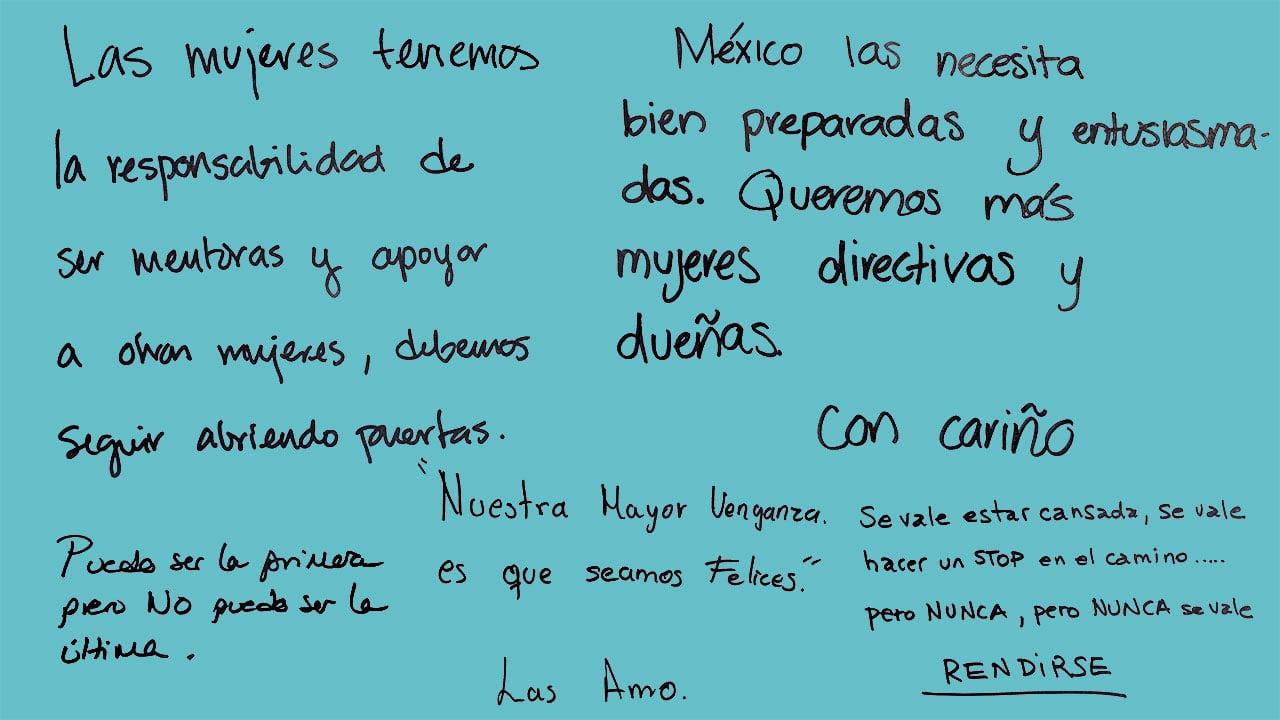 Las mujeres tenemos
la responsabilidad de
ser mentoras y apoyar
a otras mujeres, debemos
seguir abriendo puertas.
México las necesita
bien preparadas y entusiasma-
das. Queremos más
mujeres directivas y
dueñas.
Con cariño
Puedo ser la primera
pero NO puedo ser la
última.
"Nuestra Mayor Venganza.
es que seamos Felices."
Las Amo.
Se vale estar cansada, se vale
hacer un STOP en el camino.....
pero NUNCA, pero NUNCA se vale
RENDIRSE